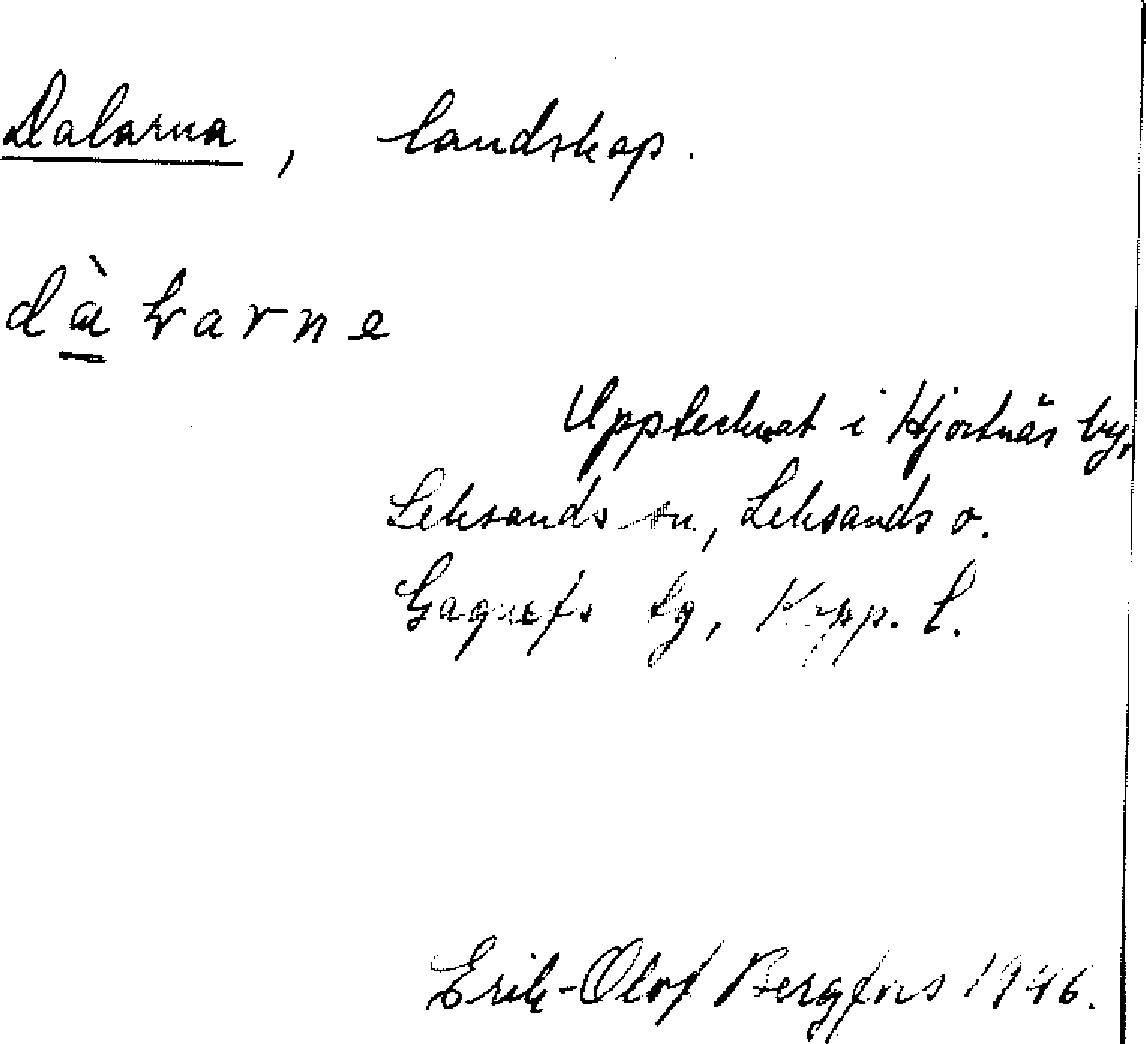 Dalarna, landskap.
dàɽarne
Upptecknat i Hjortnäs by,
Leksands sn, Leksands o.
Gagnefs tg, Kopp. l.
Erik-Olof Bergfors 1946.